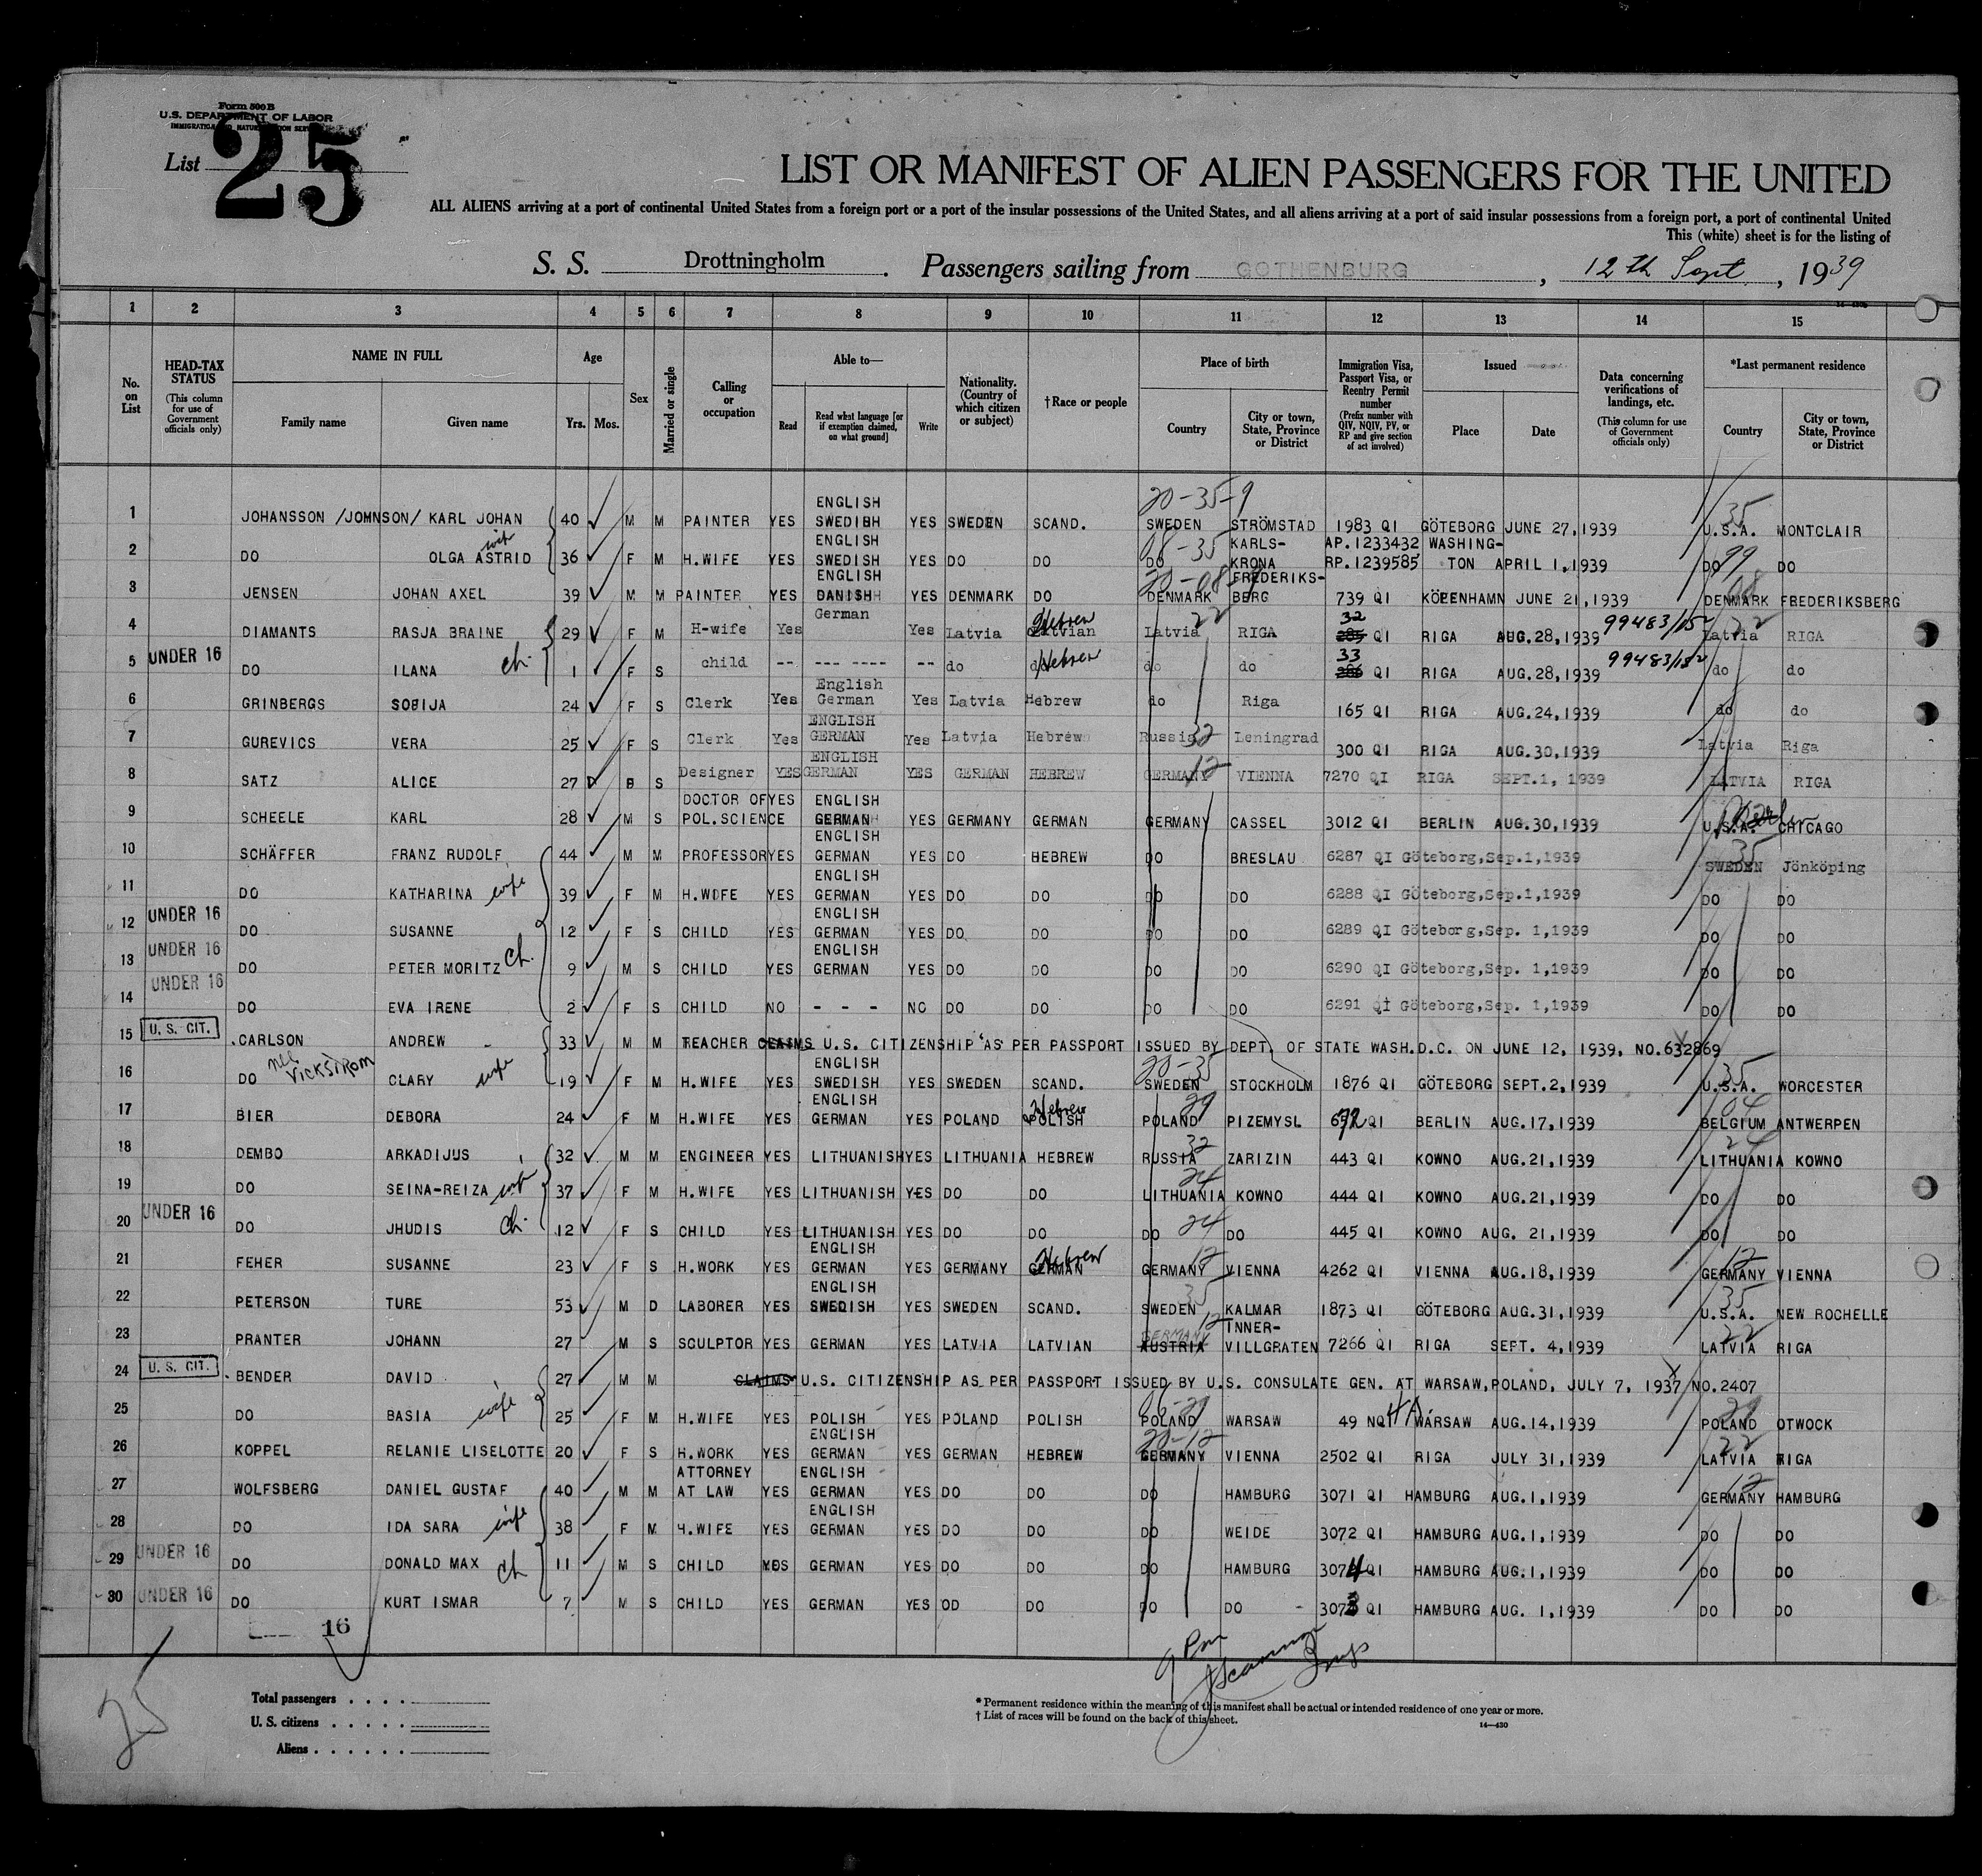 Form 500 B
U.S. DEPARTMENT OF LABOR
IMMIGRATION AND NATURALIZATION SERVICE
List 25
LIST OR MANIFEST OF ALIEN PASSENGERS FOR THE UNITED
ALL ALIENS arriving at a port of continental United States from a foreign port or a port of the insular possessions of the United States, and all aliens arriving at a port of said insular possessions from a foreign port, a port of continental United
This (white) sheet is for the listing of
S. S. Drottningholm. Passengers sailing from GOTHENBURG, 12th Sept, 1939
1 2 3 4 5 6 7 8 9 10 11 12 13 14 15
No. on List
HEAD-TAX STATUS (This column for use of Government officials only)
NAME IN FULL Family name Given name
Age Yrs. Mos.
Sex
Married or single
Calling or occupation
Able to— Read Read what language [or if exemption claimed, on what ground] Write
Nationality. (Country of which citizen or subject)
†Race or people
Place of birth Country City or town, State, Province or District
Immigration Visa, Passport Visa, or Reentry Permit number (Prefix number with QIV, NQIV, PV, or RP and give section of act involved)
Issued Place Date
Data concerning verifications of landings, etc. (This column for use of Government officials only)
*Last permanent residence Country City or town, State, Province or District
20-35-9 35
1 JOHANSSON /JOHNSON/ KARL JOHAN 40 M M PAINTER YES ENGLISH SWEDISH YES SWEDEN SCAND. SWEDEN STRÖMSTAD 1983 QI GÖTEBORG JUNE 27,1939 U.S.A. MONTCLAIR
2 DO OLGA ASTRID 36 F M H.WIFE YES ENGLISH SWEDISH YES DO DO DO KARLS-KRONA AP.1233432 RP.1239585 WASHING-TON APRIL 1,1939 DO 99 DO
3 JENSEN JOHAN AXEL 39 M M PAINTER YES ENGLISH DANISH YES DENMARK DO DENMARK FREDERIKS-BERG 739 QI KÖPENHAMN JUNE 21,1939 DENMARK FREDERIKSBERG
4 DIAMANTS RASJA BRAINE 29 F M H-wife Yes German Yes Latvia Latvian Hebrew Latvia 22 RIGA 32 285 QI RIGA AUG.28,1939 99483/152 Latvia RIGA
5 UNDER 16 DO ILANA ch. 1 F S child -- --- ---- -- do do Hebrew do do 33 286 QI RIGA AUG.28,1939 99483/152 do do
6 GRINBERGS SOFIJA 24 F S Clerk Yes English German Yes Latvia Hebrew do Riga 165 QI RIGA AUG.24,1939 do do
7 GUREVICS VERA 25 F S Clerk Yes ENGLISH GERMAN Yes Latvia Hebrew Russia 32 Leningrad 300 QI RIGA AUG.30,1939 Latvia Riga
8 SATZ ALICE 27 S Designer YES ENGLISH GERMAN YES GERMAN HEBREW GERMANY 12 VIENNA 7270 QI RIGA SEPT.1, 1939 LATVIA RIGA
9 SCHEELE KARL 28 M S DOCTOR OF POL.SCIENCE YES ENGLISH GERMAN YES GERMANY GERMAN GERMANY CASSEL 3012 QI BERLIN AUG.30,1939 U.S.A. CHICAGO
10 SCHÄFFER FRANZ RUDOLF 44 M M PROFESSOR YES ENGLISH GERMAN YES DO HEBREW DO BRESLAU 6287 QI Göteborg,Sep.1,1939 35 SWEDEN Jönköping
11 DO KATHARINA wife 39 F M H.WDFE YES ENGLISH GERMAN YES DO DO DO DO 6288 QI Göteborg,Sep.1,1939 DO DO
12 UNDER 16 DO SUSANNE 12 F S CHILD YES ENGLISH GERMAN YES DO DO DO DO 6289 QI Göteborg,Sep. 1,1939 DO DO
13 UNDER 16 DO PETER MORITZ ch. 9 M S CHILD YES ENGLISH GERMAN YES DO DO DO DO 6290 QI Göteborg,Sep. 1,1939 DO DO
14 UNDER 16 DO EVA IRENE 2 F S CHILD NO - - - NO DO DO DO DO 6291 QI Göteborg,Sep. 1,1939 DO DO
15 U. S. CIT. CARLSON ANDREW 33 M M TEACHER CLAIMS U.S. CITIZENSHIP AS PER PASSPORT ISSUED BY DEPT. OF STATE WASH.D.C. ON JUNE 12, 1939, NO.632869
16 DO nee VICKSTROM CLARY wife 19 F M H.WIFE YES ENGLISH SWEDISH YES SWEDEN SCAND. 20-35 SWEDEN STOCKHOLM 1876 QI GÖTEBORG SEPT.2,1939 35 U.S.A. WORCESTER
17 BIER DEBORA 24 F M H.WIFE YES ENGLISH GERMAN YES POLAND POLISH Hebrew 29 POLAND PIZEMYSL 672 QI BERLIN AUG.17,1939 04 BELGIUM ANTWERPEN
18 DEMBO ARKADIJUS 32 M M ENGINEER YES LITHUANISH YES LITHUANIA HEBREW 32 RUSSIA ZARIZIN 443 QI KOWNO AUG.21,1939 24 LITHUANIA KOWNO
19 DO SEINA-REIZA wife 37 F M H.WIFE YES LITHUANISH YES DO DO 24 LITHUANIA KOWNO 444 QI KOWNO AUG.21,1939 DO DO
20 UNDER 16 DO JHUDIS ch. 12 F S CHILD YES LITHUANISH YES DO DO DO 24 DO 445 QI KOWNO AUG. 21,1939 DO DO
21 FEHER SUSANNE 23 F S H.WORK YES ENGLISH GERMAN YES GERMANY GERMAN Hebrew 12 GERMANY VIENNA 4262 QI VIENNA AUG.18,1939 12 GERMANY VIENNA
22 PETERSON TURE 53 M D LABORER YES ENGLISH SWEDISH YES SWEDEN SCAND. 35 SWEDEN KALMAR 1873 QI GÖTEBORG AUG.31,1939 35 U.S.A. NEW ROCHELLE
23 PRANTER JOHANN 27 M S SCULPTOR YES GERMAN YES LATVIA LATVIAN 12 GERMANY AUSTRIA INNER-VILLGRATEN 7266 QI RIGA SEPT. 4,1939 22 LATVIA RIGA
24 U. S. CIT. BENDER DAVID 27 M M CLAIMS U.S. CITIZENSHIP AS PER PASSPORT ISSUED BY U.S. CONSULATE GEN. AT WARSAW,POLAND, JULY 7, 1937 NO.2407
25 DO BASIA wife 25 F M H.WIFE YES POLISH YES POLAND POLISH POLAND WARSAW 49 NQI 4A. WARSAW AUG.14,1939 29 POLAND OTWOCK
26 KOPPEL RELANIE LISELOTTE 20 F S H.WORK YES ENGLISH GERMAN YES GERMAN HEBREW 20-12 GERMANY VIENNA 2502 QI RIGA JULY 31,1939 22 LATVIA RIGA
27 WOLFSBERG DANIEL GUSTAF 40 M M ATTORNEY AT LAW YES ENGLISH GERMAN YES DO DO DO HAMBURG 3071 QI HAMBURG AUG.1,1939 12 GERMANY HAMBURG
28 DO IDA SARA wife 38 F M H.WIFE YES ENGLISH GERMAN YES DO DO DO WEIDE 3072 QI HAMBURG AUG.1,1939 DO DO
29 UNDER 16 DO DONALD MAX ch 11 M S CHILD YES GERMAN YES DO DO DO HAMBURG 3074 QI HAMBURG AUG.1,1939 DO DO
30 UNDER 16 DO KURT ISMAR 7 M S CHILD YES GERMAN YES OD DO DO DO - 3073 QI HAMBURG AUG. 1,1939 DO DO
16
25
9 Pm
Total passengers . . . .
U. S. citizens . . . . .
Aliens . . . . . .
* Permanent residence within the meaning of this manifest shall be actual or intended residence of one year or more.
† List of races will be found on the back of this sheet.
14—430